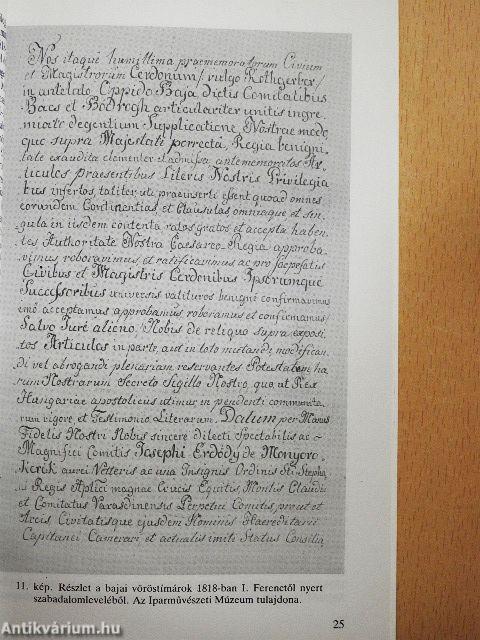 Nos itaque humillima praememoratorum Civium
et Magistrorum Cerdonum/ vulgo Rothgerber/
in antelato Oppido Baja dictis Comitatibus
Bacs et Bodrogh articulariter unitis ingre-
miato degentium Supplicatione Nostrae modo
quo supra Majestati porrecta, Regia benigni-
tate exaudita clementer et admissa antememoratos Ar-
ticulos praesentibus Literis Nostris Privilegia
bus insertos, taliter uti praeinserti essent quoad omnes
eorundem Continentias, et Clausulas omniaque et sin-
gula in iisdem contenta ratos gratos et accepta haben-
tes Authoritate Nostra Caesareo Regia approba-
vimus roboravimus et ratificavimus ac pro
Civibus et Magistris Cerdonibus Ipsorumque
Successoribus universis valituros benigne confirmavimus
imo acceptamus approbamus, roboramus et confirmamus,
Salvo Jure alieno, Nobis de reliquo supra exposi-
tos Articulos in parte, aut in toto mutandi, modifican-
di vel abrogandi plenariam reservantes Potestatem ha-
rum Nostrarum Secreto Sigillo Nostro, quo, ut Rex
Hungariae apostolicus utimur in pendenti communita-
rum vigore, et Testimonio Literarum. Datum per Manus
Fidelis Nostri Nobis sincere dilecti Spectabilis ac
Magnifici Comitis Josephi Erdődy de Monyoro-
kerik aurei Velleris ac una Insignis Ordinis Sti Stepha-
ni Regis Aplici magnae Crucis Equitis, Montis Claudii
et Comitatus Varasdinensis Perpetui Comitis, prout et
Arcis Civitatisque ejusdem Nominis Haereditarii
Capitanei Camerarii et actualis intimi Status Consilia
11. kép. Részlet a bajai vöröstímárok 1818-ban I. Ferenctől nyert
szabadalomleveléből. Az Iparművészeti Múzeum tulajdona.
25
Antikvárium.hu